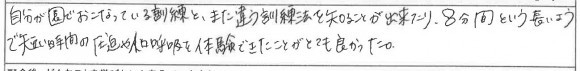 自分が園でおこなっている訓練と、また違う訓練法を知ることが出来たり、8分間という長いよう
で短い時間の圧迫や人口呼吸を体験できたことがとても良かった。